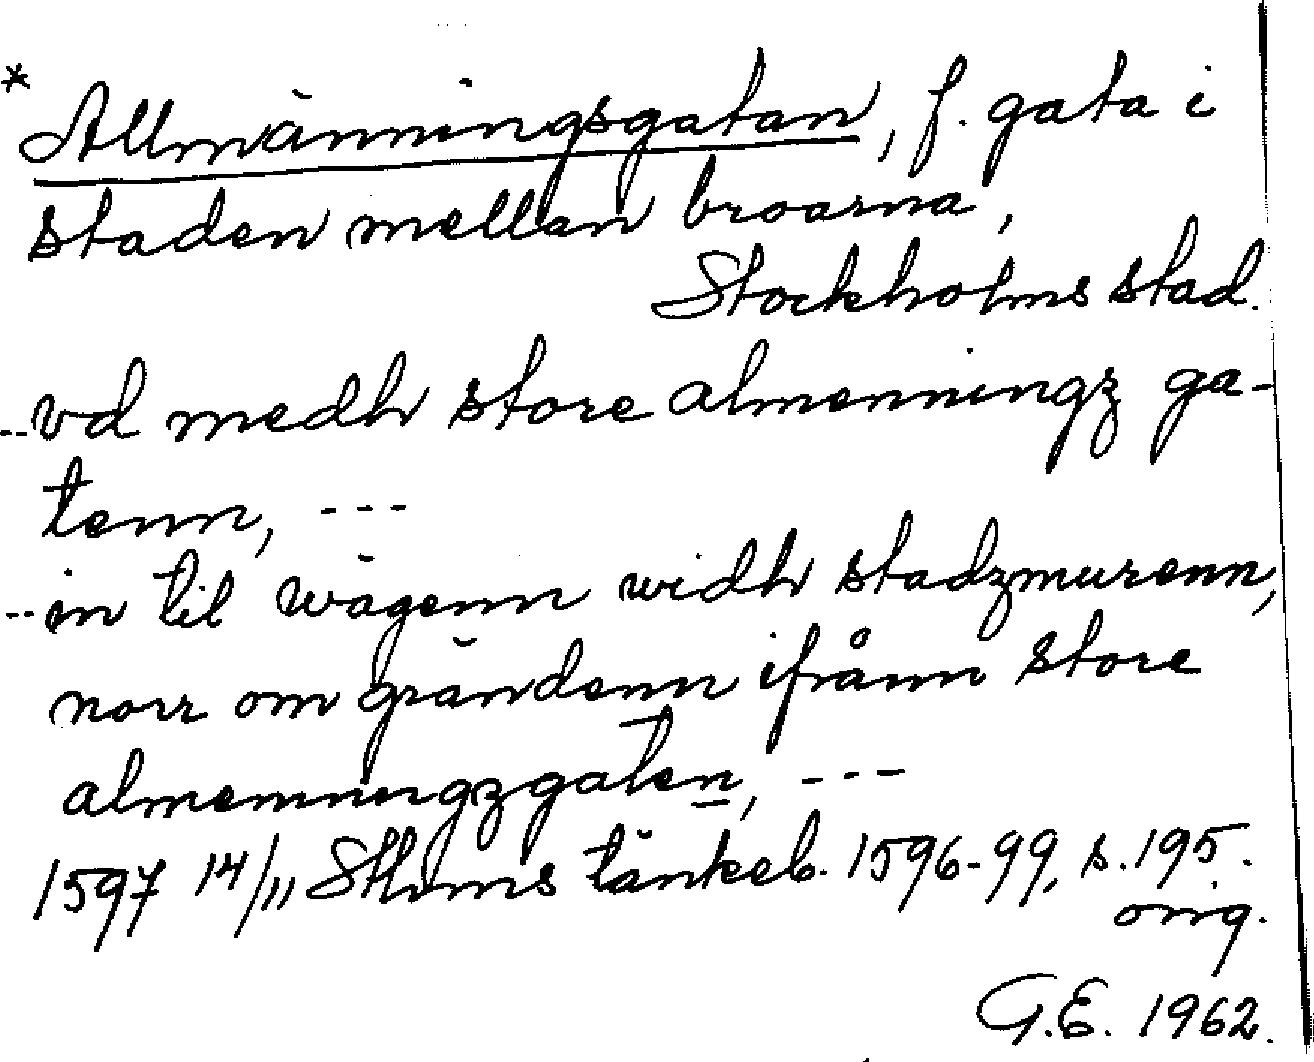 * Allmänningsgatan, f. gata i
staden mellan broarna,
Stockholms stad.
--vd medh store almenningz ga-
tenn, ---
--in til wägenn widh stadzmurenn,
norr om grändenn ifrånn store
almenningzgaten, ---
1597 14/11 Sthms tänkeb. 1596-99, s. 195.
orig.
G.E. 1962.